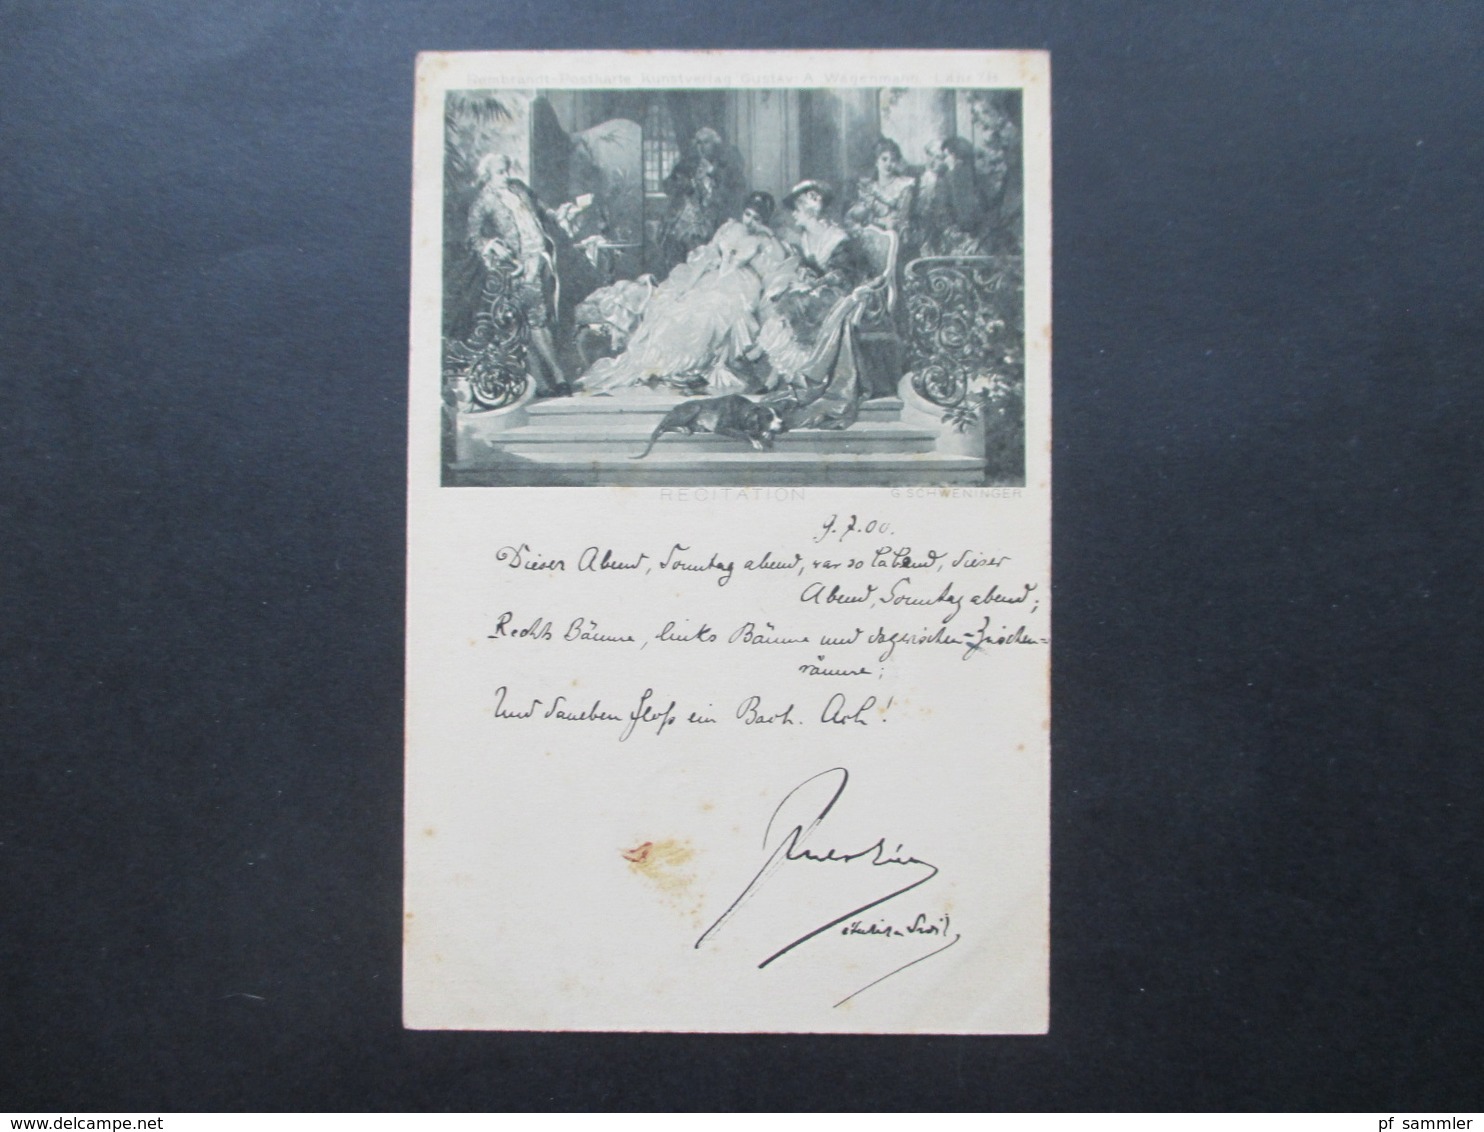 Rembrandt-Postkarte Kunstverlag Gustav A. Wagenmann.
RECITATION
G SCHWENINGER
9.7.00.
Dieser Abend, Sonntag abend, war so labend, dieser
Abend, Sonntag abend;
Rechts Bäume, links Bäume und dazwischen Zwischen=
räume;
Und daneben floß ein Bach. Ach!
pf sammler